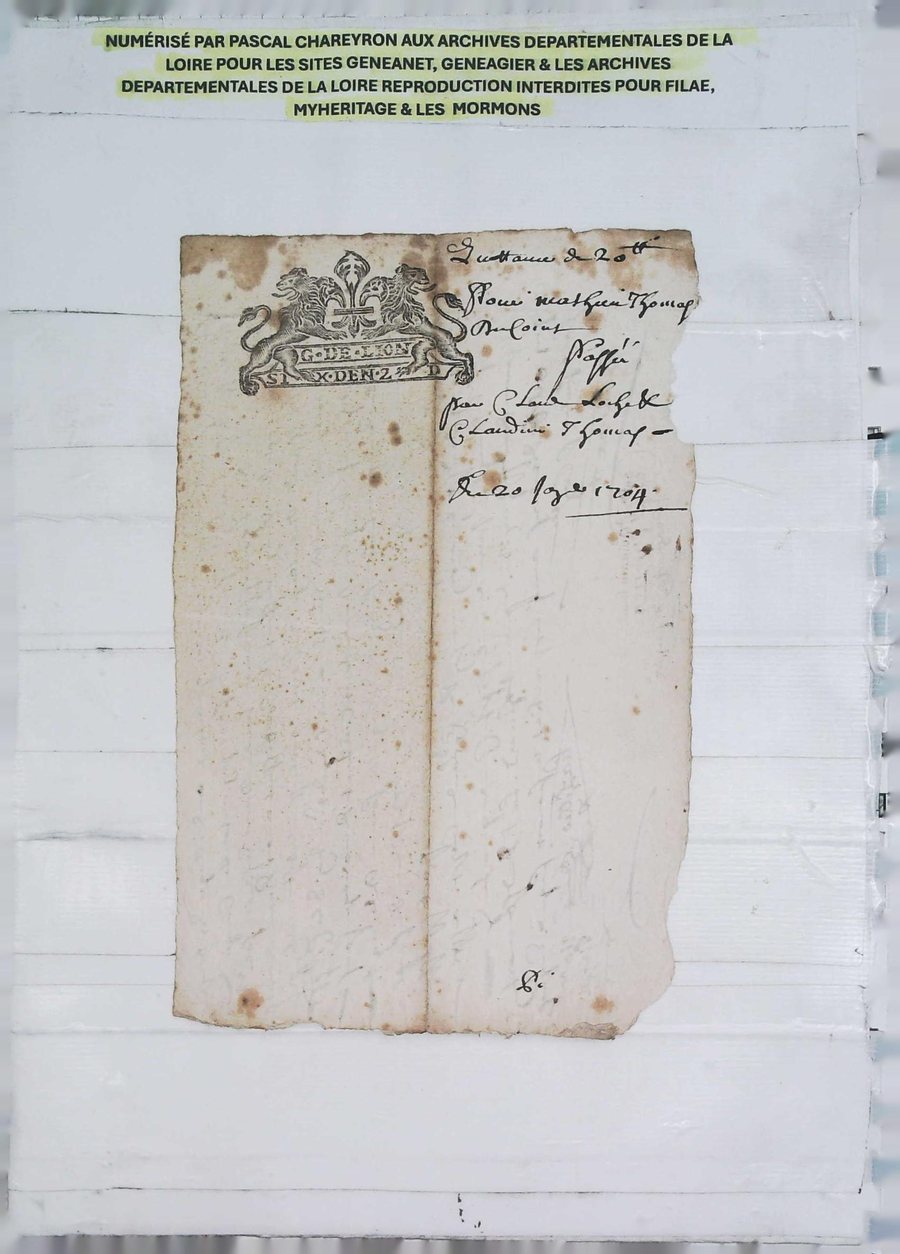 NUMÉRISÉ PAR PASCAL CHAREYRON AUX ARCHIVES DEPARTEMENTALES DE LA
LOIRE POUR LES SITES GENEANET, GENEAGIER & LES ARCHIVES
DEPARTEMENTALES DE LA LOIRE REPRODUCTION INTERDITES POUR FILAE,
MYHERITAGE & LES MORMONS
G·DE·LION
SIX·DEN·2 D
Quittance de 20 tt
Pour mathieu Thomas
Du Coint
Passée
par Claude &
Claudine Thomas
Du 20 1704